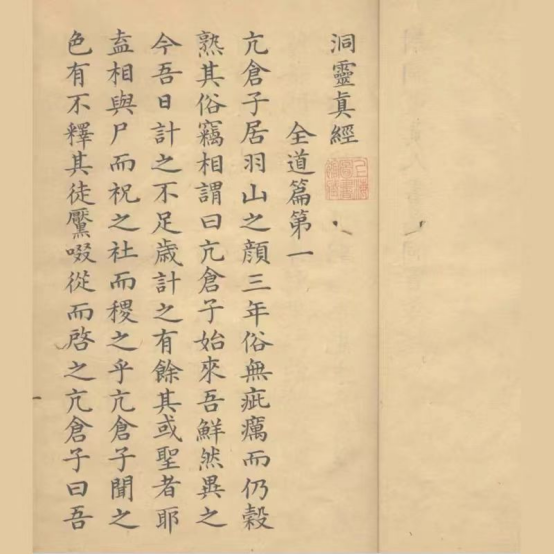 洞靈真經
全道篇第一
亢倉子居羽山之顔三年俗無疵癘而仍穀
熟其俗竊相謂曰亢倉子始來吾鮮然異之
今吾日計之不足歲計之有餘其或聖者耶
盍相與尸而祝之社而稷之乎亢倉子聞之
色有不釋其徒啜從而啓之亢倉子曰吾